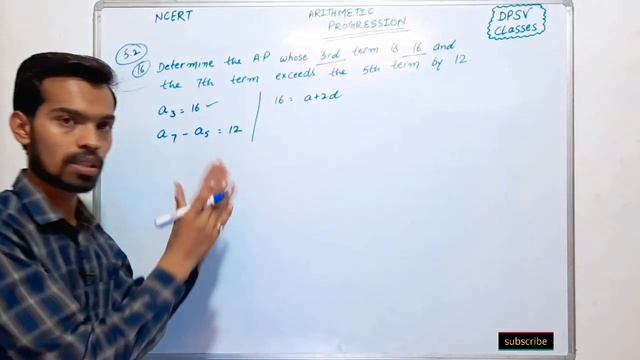 NCERT
ARITHMETIC
PROGRESSION
DPSV
Classes
5.2
16 Determine the AP whose 3rd term is 16 and
the 7th term exceeds the 5th term by 12.
a₃ = 16 ✓
a₇ - a₅ = 12
16 = a+2d
subscribe